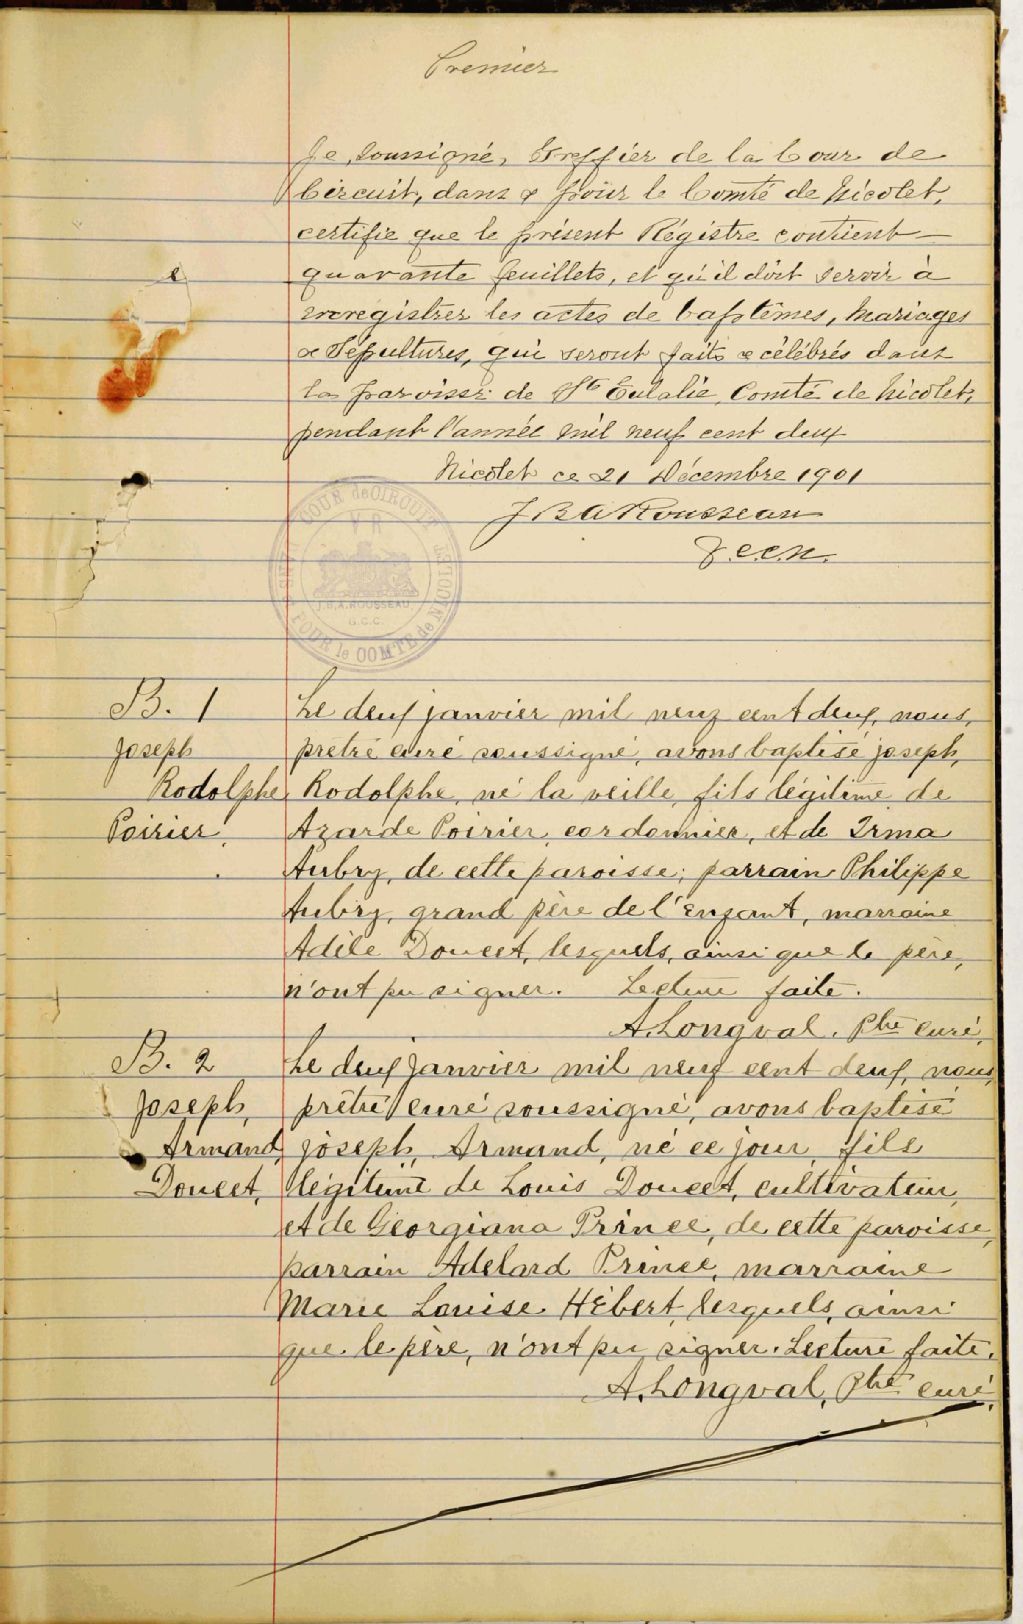 Premier
Je, soussigné, Greffier de la Cour de
Circuit, dans & pour le Comté de Nicolet,
certifie que le présent Régistre contient
quarante feuillets, et qu'il doit servir à
enregistrer les actes de baptêmes, mariages
& Sépultures, qui seront faits & célébrés dans
la paroisse de Ste Eulalie, Comté de Nicolet,
pendant l'année mil neuf cent deux
Nicolet ce 21 Décembre 1901
J B A Rousseau
G.C.C.N.
COUR de CIRCUIT DANS & POUR le COMTE de NICOLET
V R
J.B.A. ROUSSEAU
G.C.C.
B. 1
Joseph
Rodolphe
Poirier.
Le deux janvier mil neuf cent deux, nous,
prêtre curé soussigné, avons baptisé joseph,
Rodolphe, né la veille, fils légitime de
Azarde Poirier, cordonnier, et de Irma
Aubry, de cette paroisse; parrain Philippe
Aubry, grand père de l'enfant, marraine
Adèle Doucet, lesquels, ainsi que le père,
n'ont pu signer. Lecture faite.
A. Longval. Ptre curé.
B. 2
Joseph,
Armand,
Doucet,
Le deux janvier mil neuf cent deux, nous,
prêtre curé soussigné, avons baptisé
joseph, Armand, né ce jour, fils
légitime de Louis Doucet, cultivateur,
et de Georgiana Prince, de cette paroisse,
parrain Adelard Prince, marraine
Marie Louise Hébert, lesquels, ainsi
que le père, n'ont pu signer. Lecture faite.
A. Longval, Ptre curé.